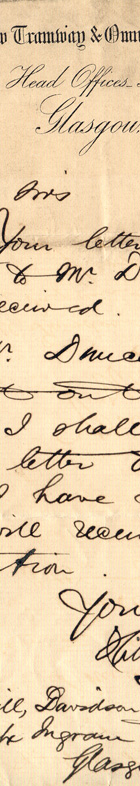 w Tramway & Omn
Head Offices
Glasgow
Sirs
Your letter
to Mr. D
eceived.
r. Dunca
I shall
letter
I have
will recei
tion.
You
ill, Davidson
te Ingram
Glasg